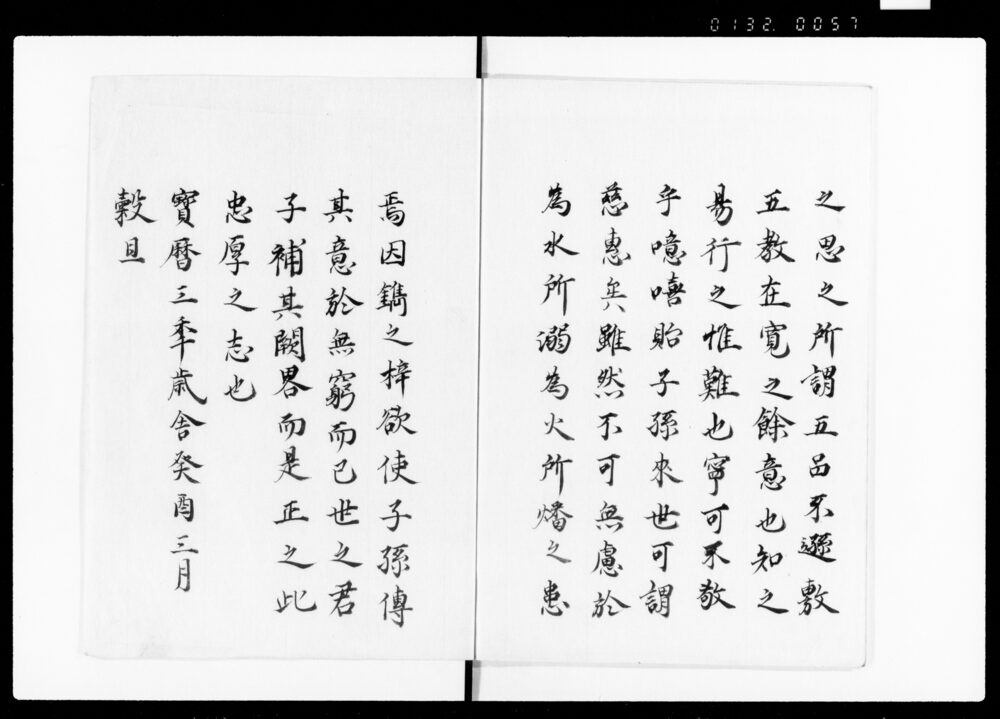 0132.0057
之思之所謂五品不遜敷
五教在寛之餘意也知之
易行之惟難也寧可不敬
乎噫嘻貽子孫來世可謂
慈惠矣雖然不可無慮於
為水所溺為火所燔之患
焉因鐫之梓欲使子孫傳
其意於無窮而已世之君
子補其闕畧而是正之此
忠厚之志也
寳暦三年歳舎癸酉三月
穀旦